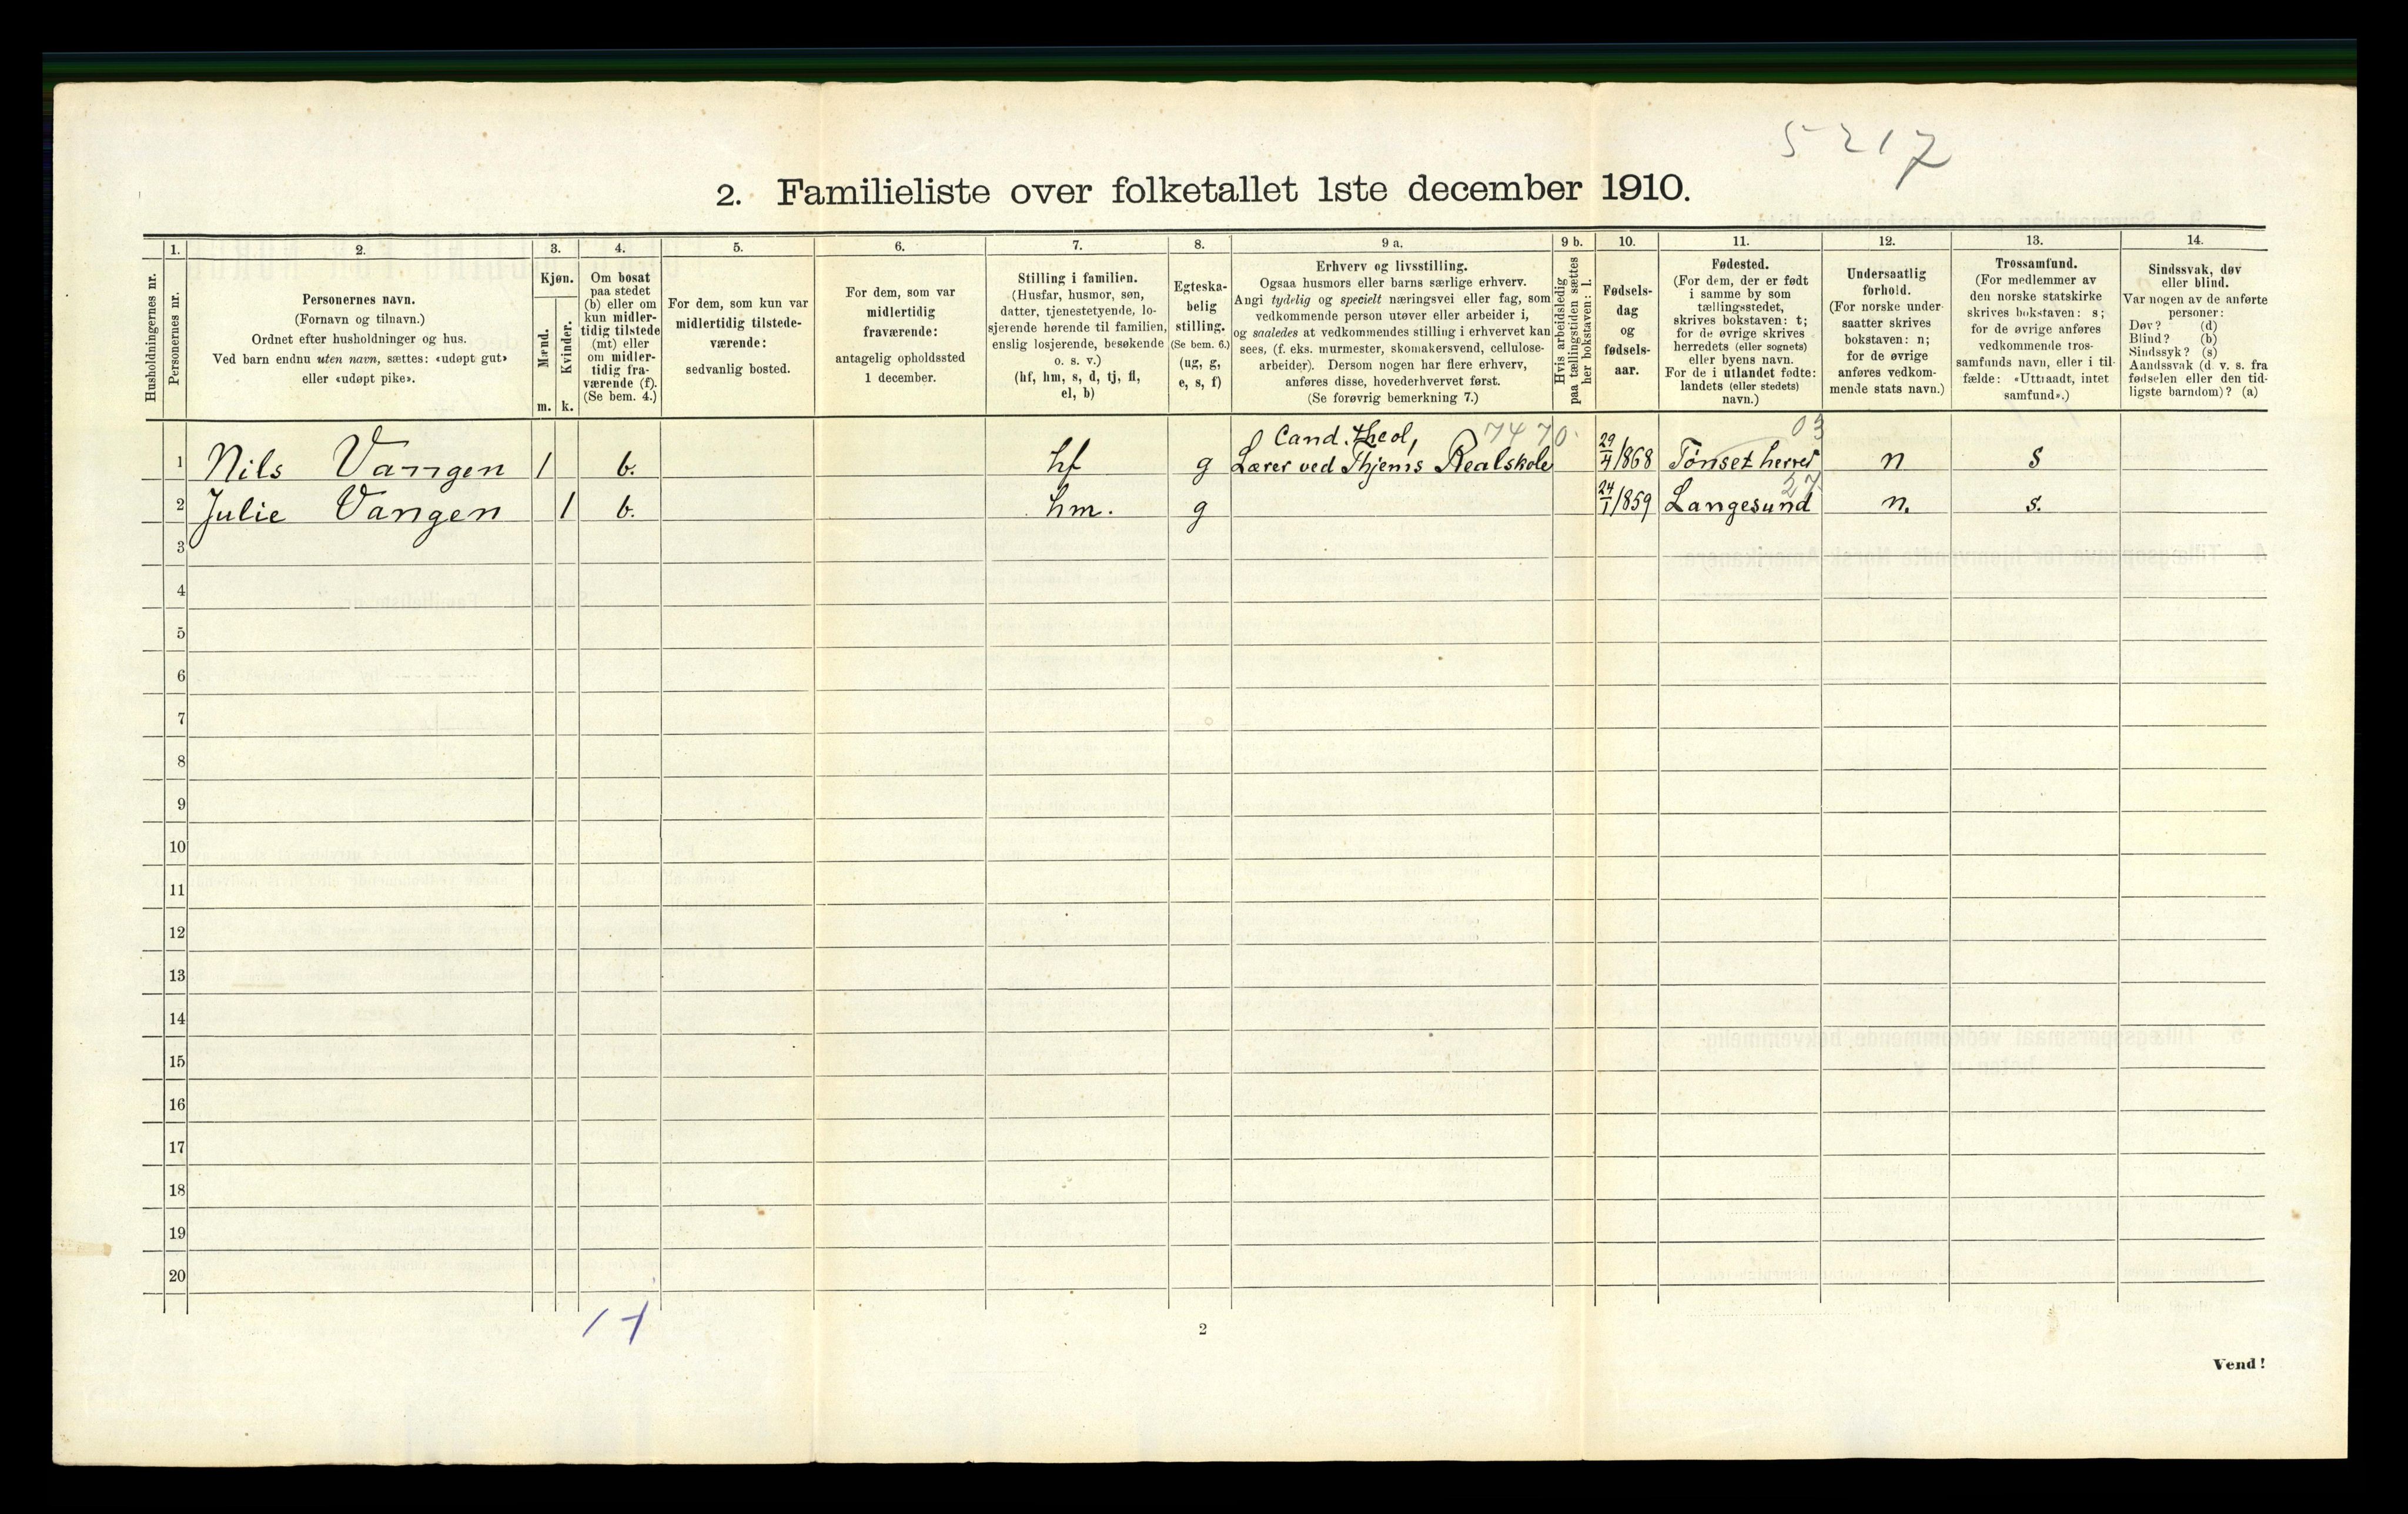 5217
2. Familieliste over folketallet 1ste december 1910.
Husholdningernes nr.
1.
Personernes nr.
2.
Personernes navn.
(Fornavn og tilnavn.)
Ordnet efter husholdninger og hus.
Ved barn endnu uten navn, sættes: «udøpt gut»
eller «udøpt pike».
3.
Kjøn.
Mænd.
m.
Kvinder.
k.
4.
Om bosat
paa stedet
(b) eller om
kun midler-
tidig tilstede
(mt) eller
om midler-
tidig fra-
værende (f).
(Se bem. 4.)
5.
For dem, som kun var
midlertidig tilstede-
værende:
sedvanlig bosted.
6.
For dem, som var
midlertidig
fraværende:
antagelig opholdssted
1 december.
7.
Stilling i familien.
(Husfar, husmor, søn,
datter, tjenestetyende, lo-
sjerende hørende til familien,
enslig losjerende, besøkende
o. s. v.)
(hf, hm, s, d, tj, fl,
el, b)
8.
Egteska-
belig
stilling.
(Se bem. 6.)
(ug, g,
e, s, f)
9 a.
Erhverv og livsstilling.
Ogsaa husmors eller barns særlige erhverv.
Angi tydelig og specielt næringsvei eller fag, som
vedkommende person utøver eller arbeider i,
og saaledes at vedkommendes stilling i erhvervet kan
sees, (f. eks. murmester, skomakersvend, cellulose-
arbeider). Dersom nogen har flere erhverv,
anføres disse, hovederhvervet først.
(Se forøvrig bemerkning 7.)
9 b.
Hvis arbeidsledig
paa tællingstiden sættes
her bokstaven: l.
10.
Fødsels-
dag
og
fødsels-
aar.
11.
Fødested.
(For dem, der er født
i samme by som
tællingsstedet,
skrives bokstaven: t;
for de øvrige skrives
herredets (eller sognets)
eller byens navn.
For de i utlandet fødte:
landets (eller stedets)
navn.)
12.
Undersaatlig
forhold.
(For norske under-
saatter skrives
bokstaven: n;
for de øvrige
anføres vedkom-
mende stats navn.)
13.
Trossamfund.
(For medlemmer av
den norske statskirke
skrives bokstaven: s;
for de øvrige anføres
vedkommende tros-
samfunds navn, eller i til-
fælde: «Uttraadt, intet
samfund».)
14.
Sindssvak, døv
eller blind.
Var nogen av de anførte
personer:
Døv? (d)
Blind? (b)
Sindssyk? (s)
Aandssvak (d. v. s. fra
fødselen eller den tid-
ligste barndom)? (a)
Cand. theol, 7470 03
1 Nils Vangen 1 b. hf g Lærer ved Thjems Realskole 29/4 1868 Tønset herred n s
27
2 Julie Vangen 1 b. hm. g 24/1 1859 Langesund n. s.
3
4
5
6
7
8
9
10
11
12
13
14
15
16
17
18
19
20
2
Vend!